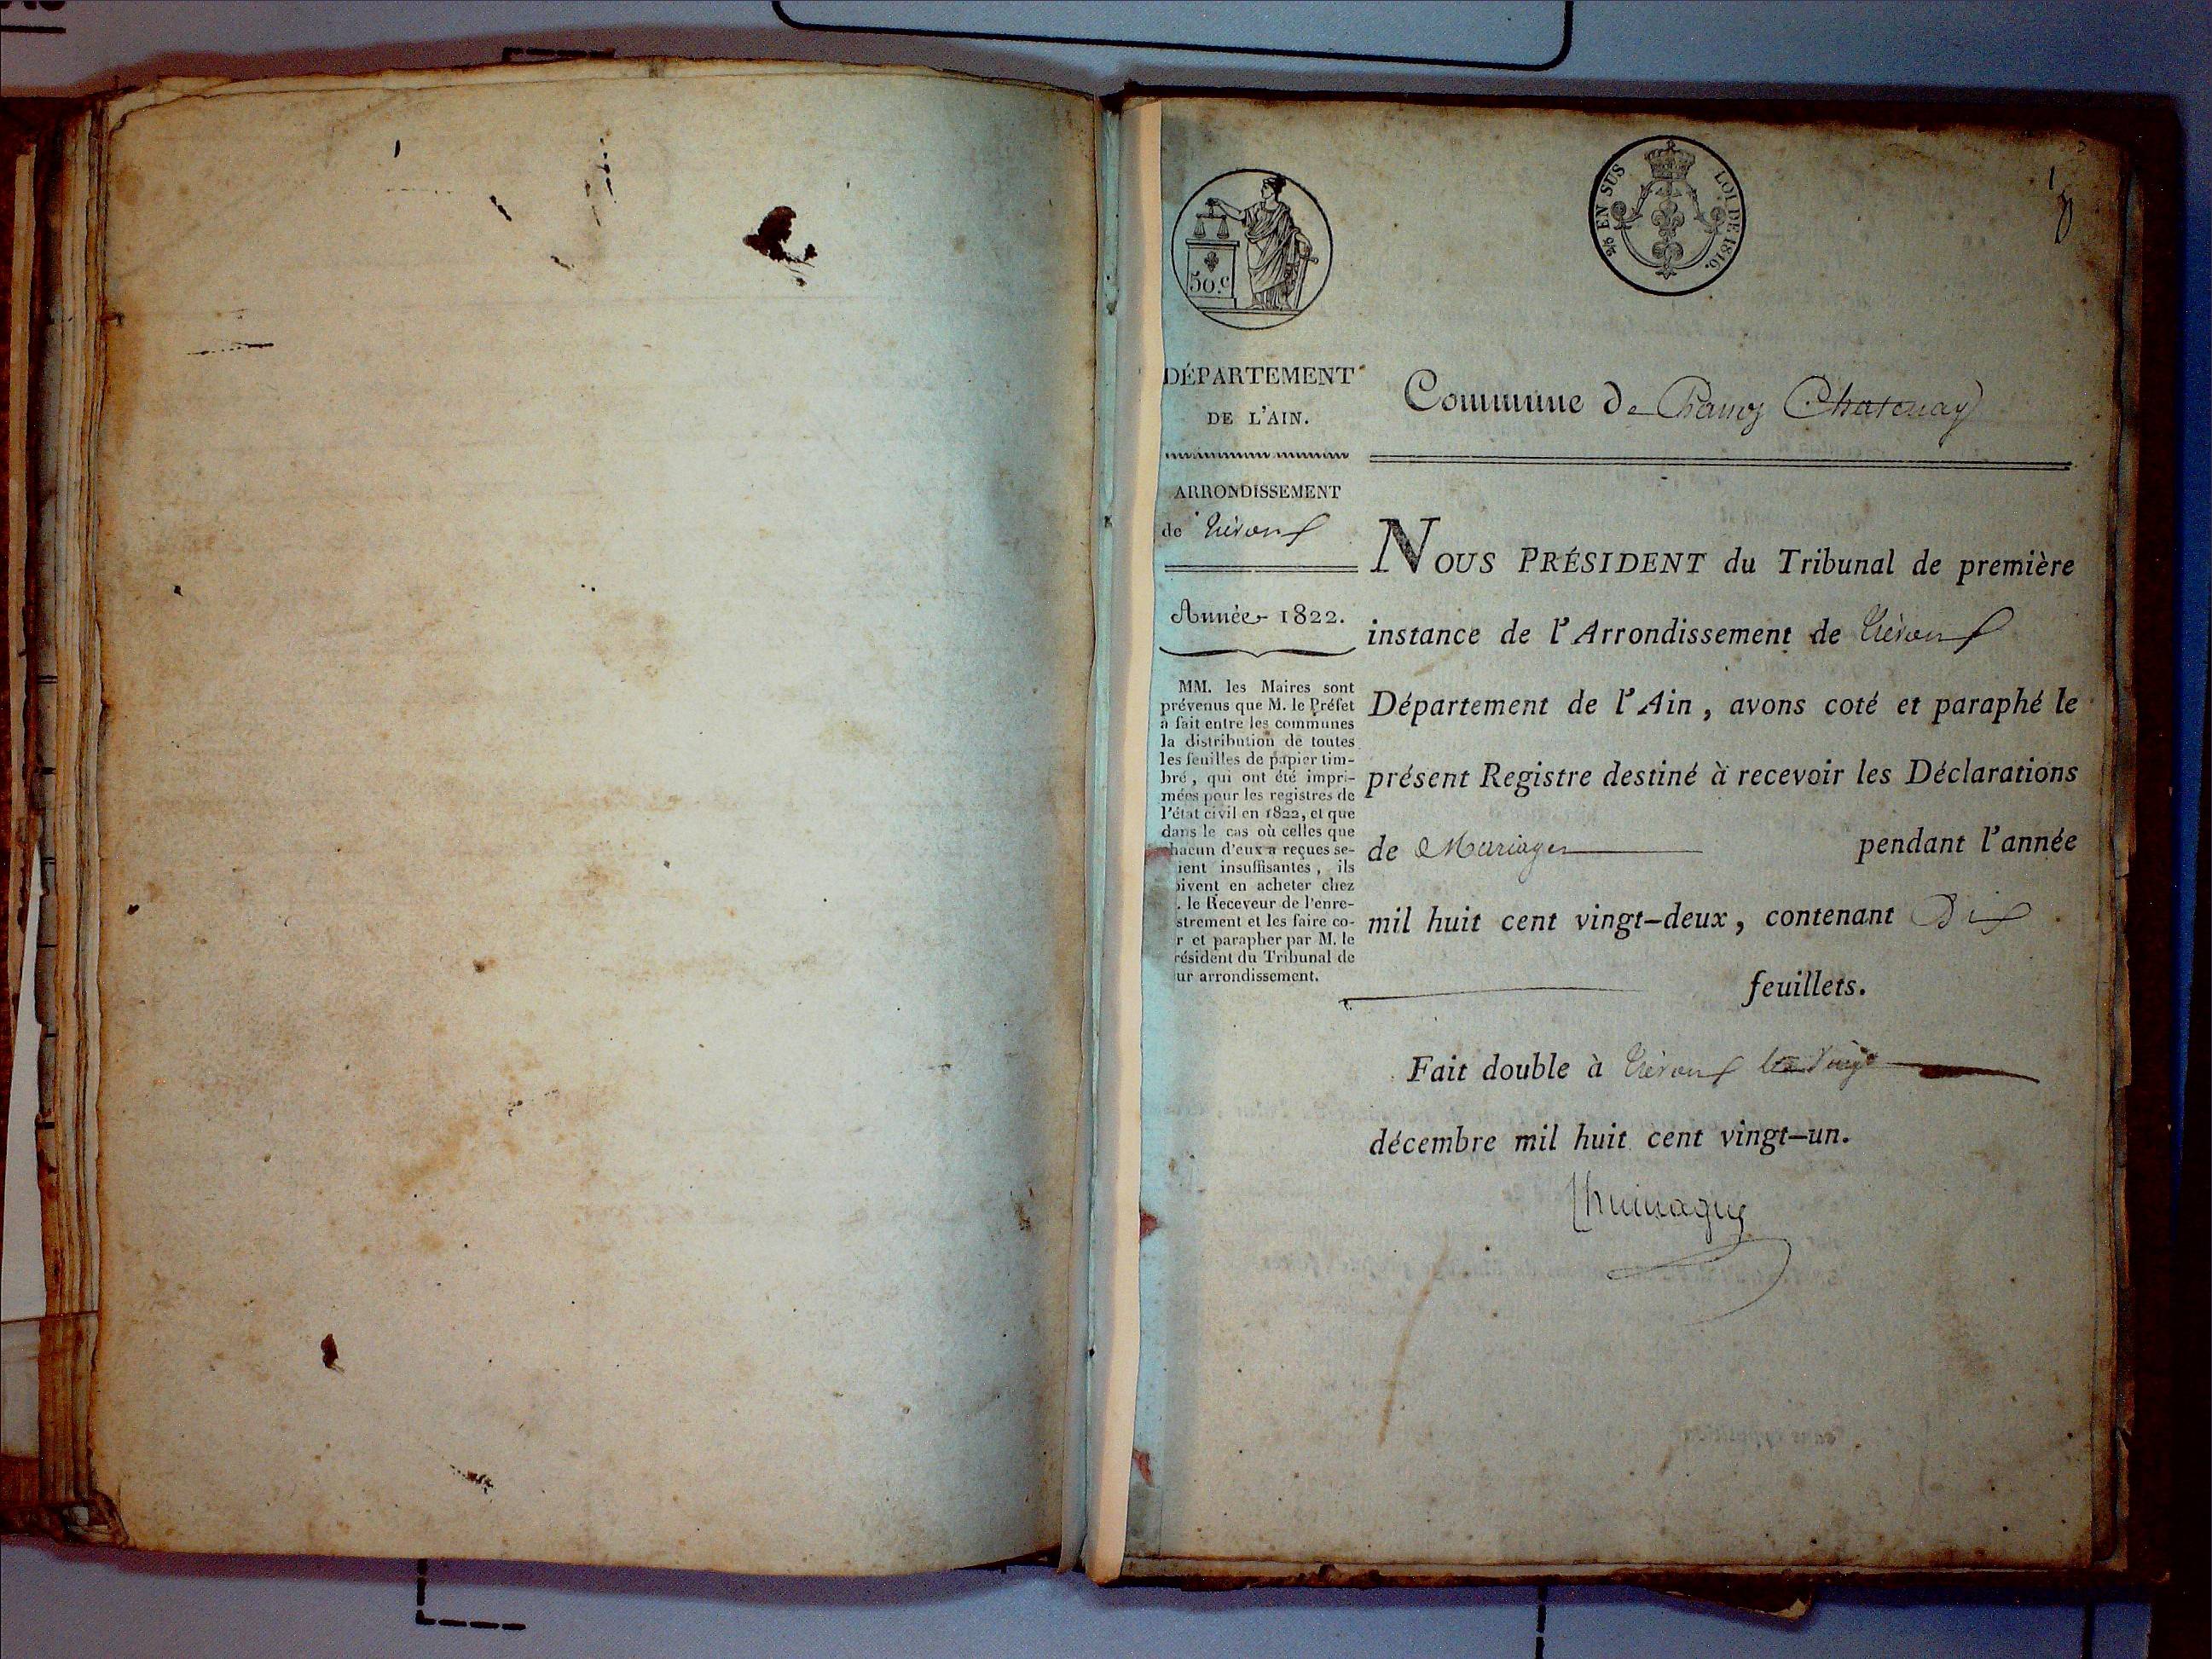 50.c
2/10 EN SUS LOI DE 1816.
DÉPARTEMENT
DE L'AIN.
ARRONDISSEMENT
de Trévoux
Année 1822.
MM. les Maires sont
prévenus que M. le Préfet
a fait entre les communes
la distribution de toutes
les feuilles de papier tim-
bré, qui ont été impri-
mées pour les registres de
l'état civil en 1822, et que
dans le cas où celles que
hacun d'eux a reçues se-
ient insuffisantes, ils
oivent en acheter chez
. le Receveur de l'enre-
strement et les faire co-
r et parapher par M. le
résident du Tribunal de
ur arrondissement.
Commune de Chatenay
NOUS PRÉSIDENT du Tribunal de première
instance de l'Arrondissement de Trévoux
Département de l'Ain, avons coté et paraphé le
présent Registre destiné à recevoir les Déclarations
de Mariages pendant l'année
mil huit cent vingt-deux, contenant Dix
feuillets.
Fait double à Trévoux le vingt
décembre mil huit cent vingt-un.